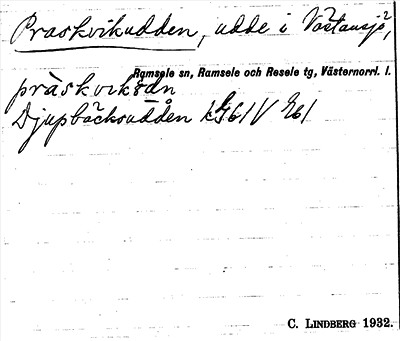 Praskvikudden, udde i Västansjö,
Ramsele sn, Ramsele och Resele tg, Västernorrl. l.
Djupbäcksudden
C. LINDBERG 1932.